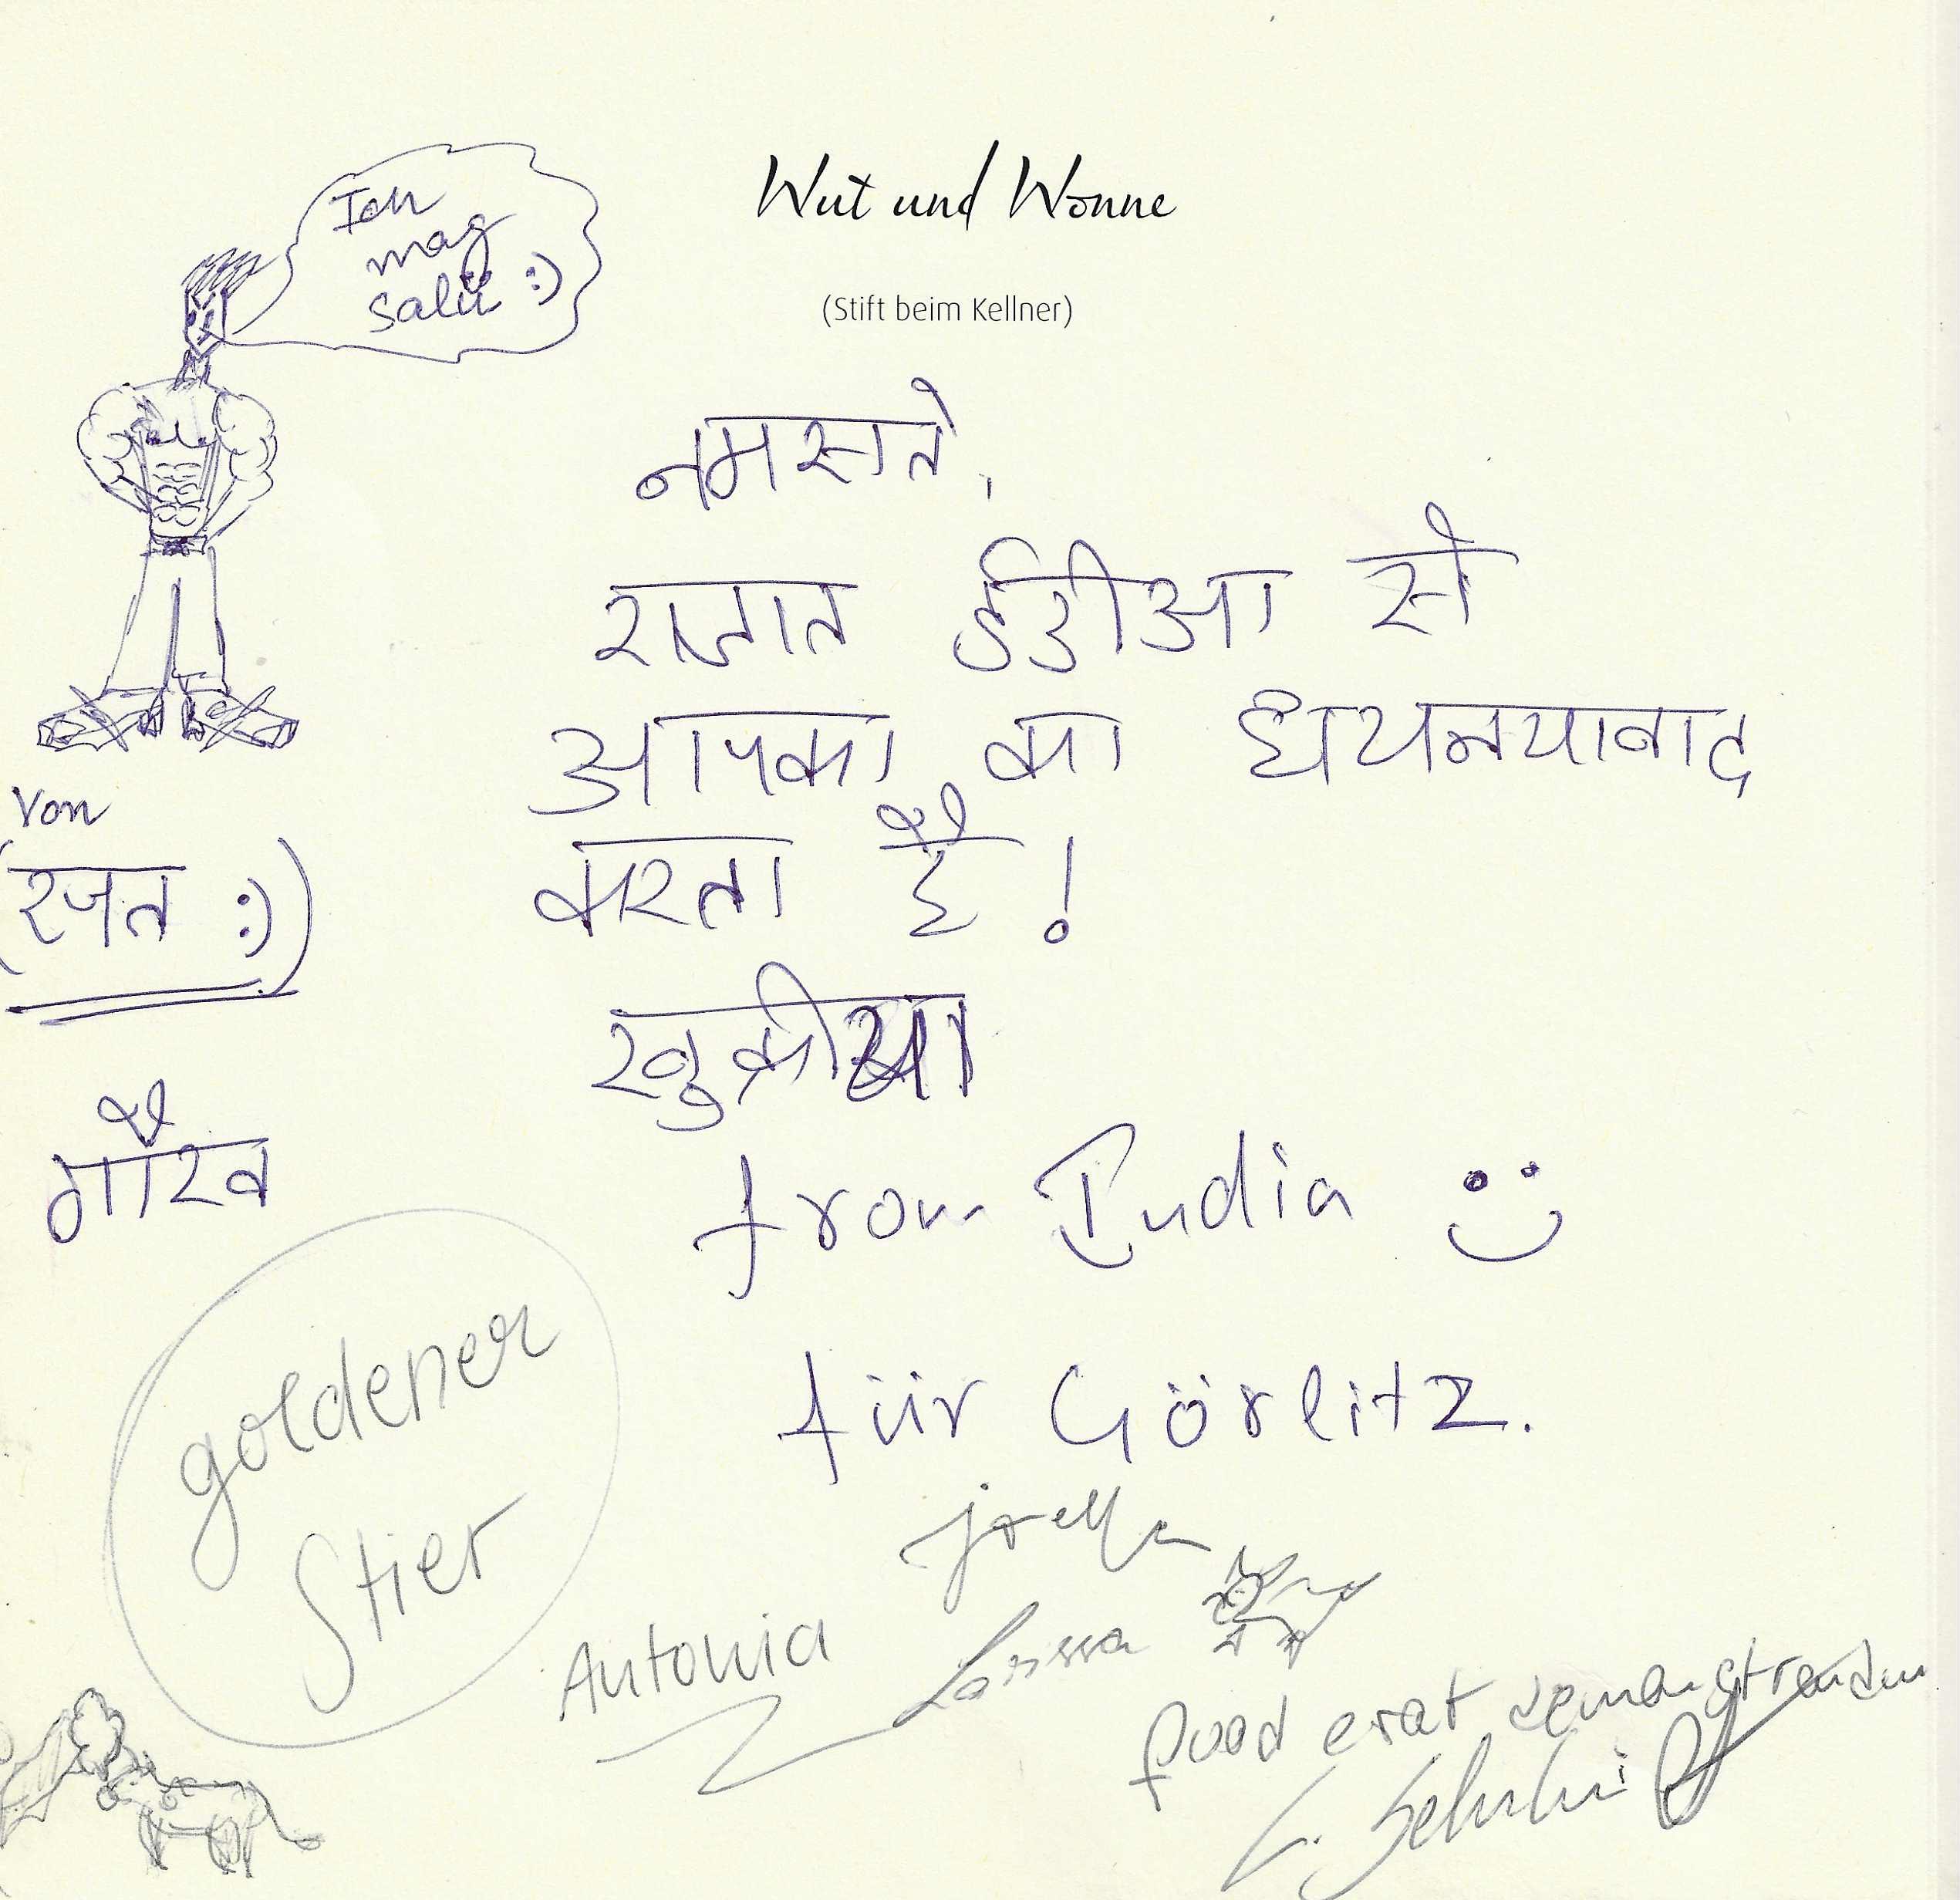 Wut und Wonne
(Stift beim Kellner)
Ich
mag
salü :)
नमसते,
राजात ईडीआ से
आपका का धयनयावाद
करता है!
खुक्रीया
from India
für Görlitz.
von
(रजत :))
गौरव
goldener
Stier
Antonia
Larissa
quod erat demonstrandum